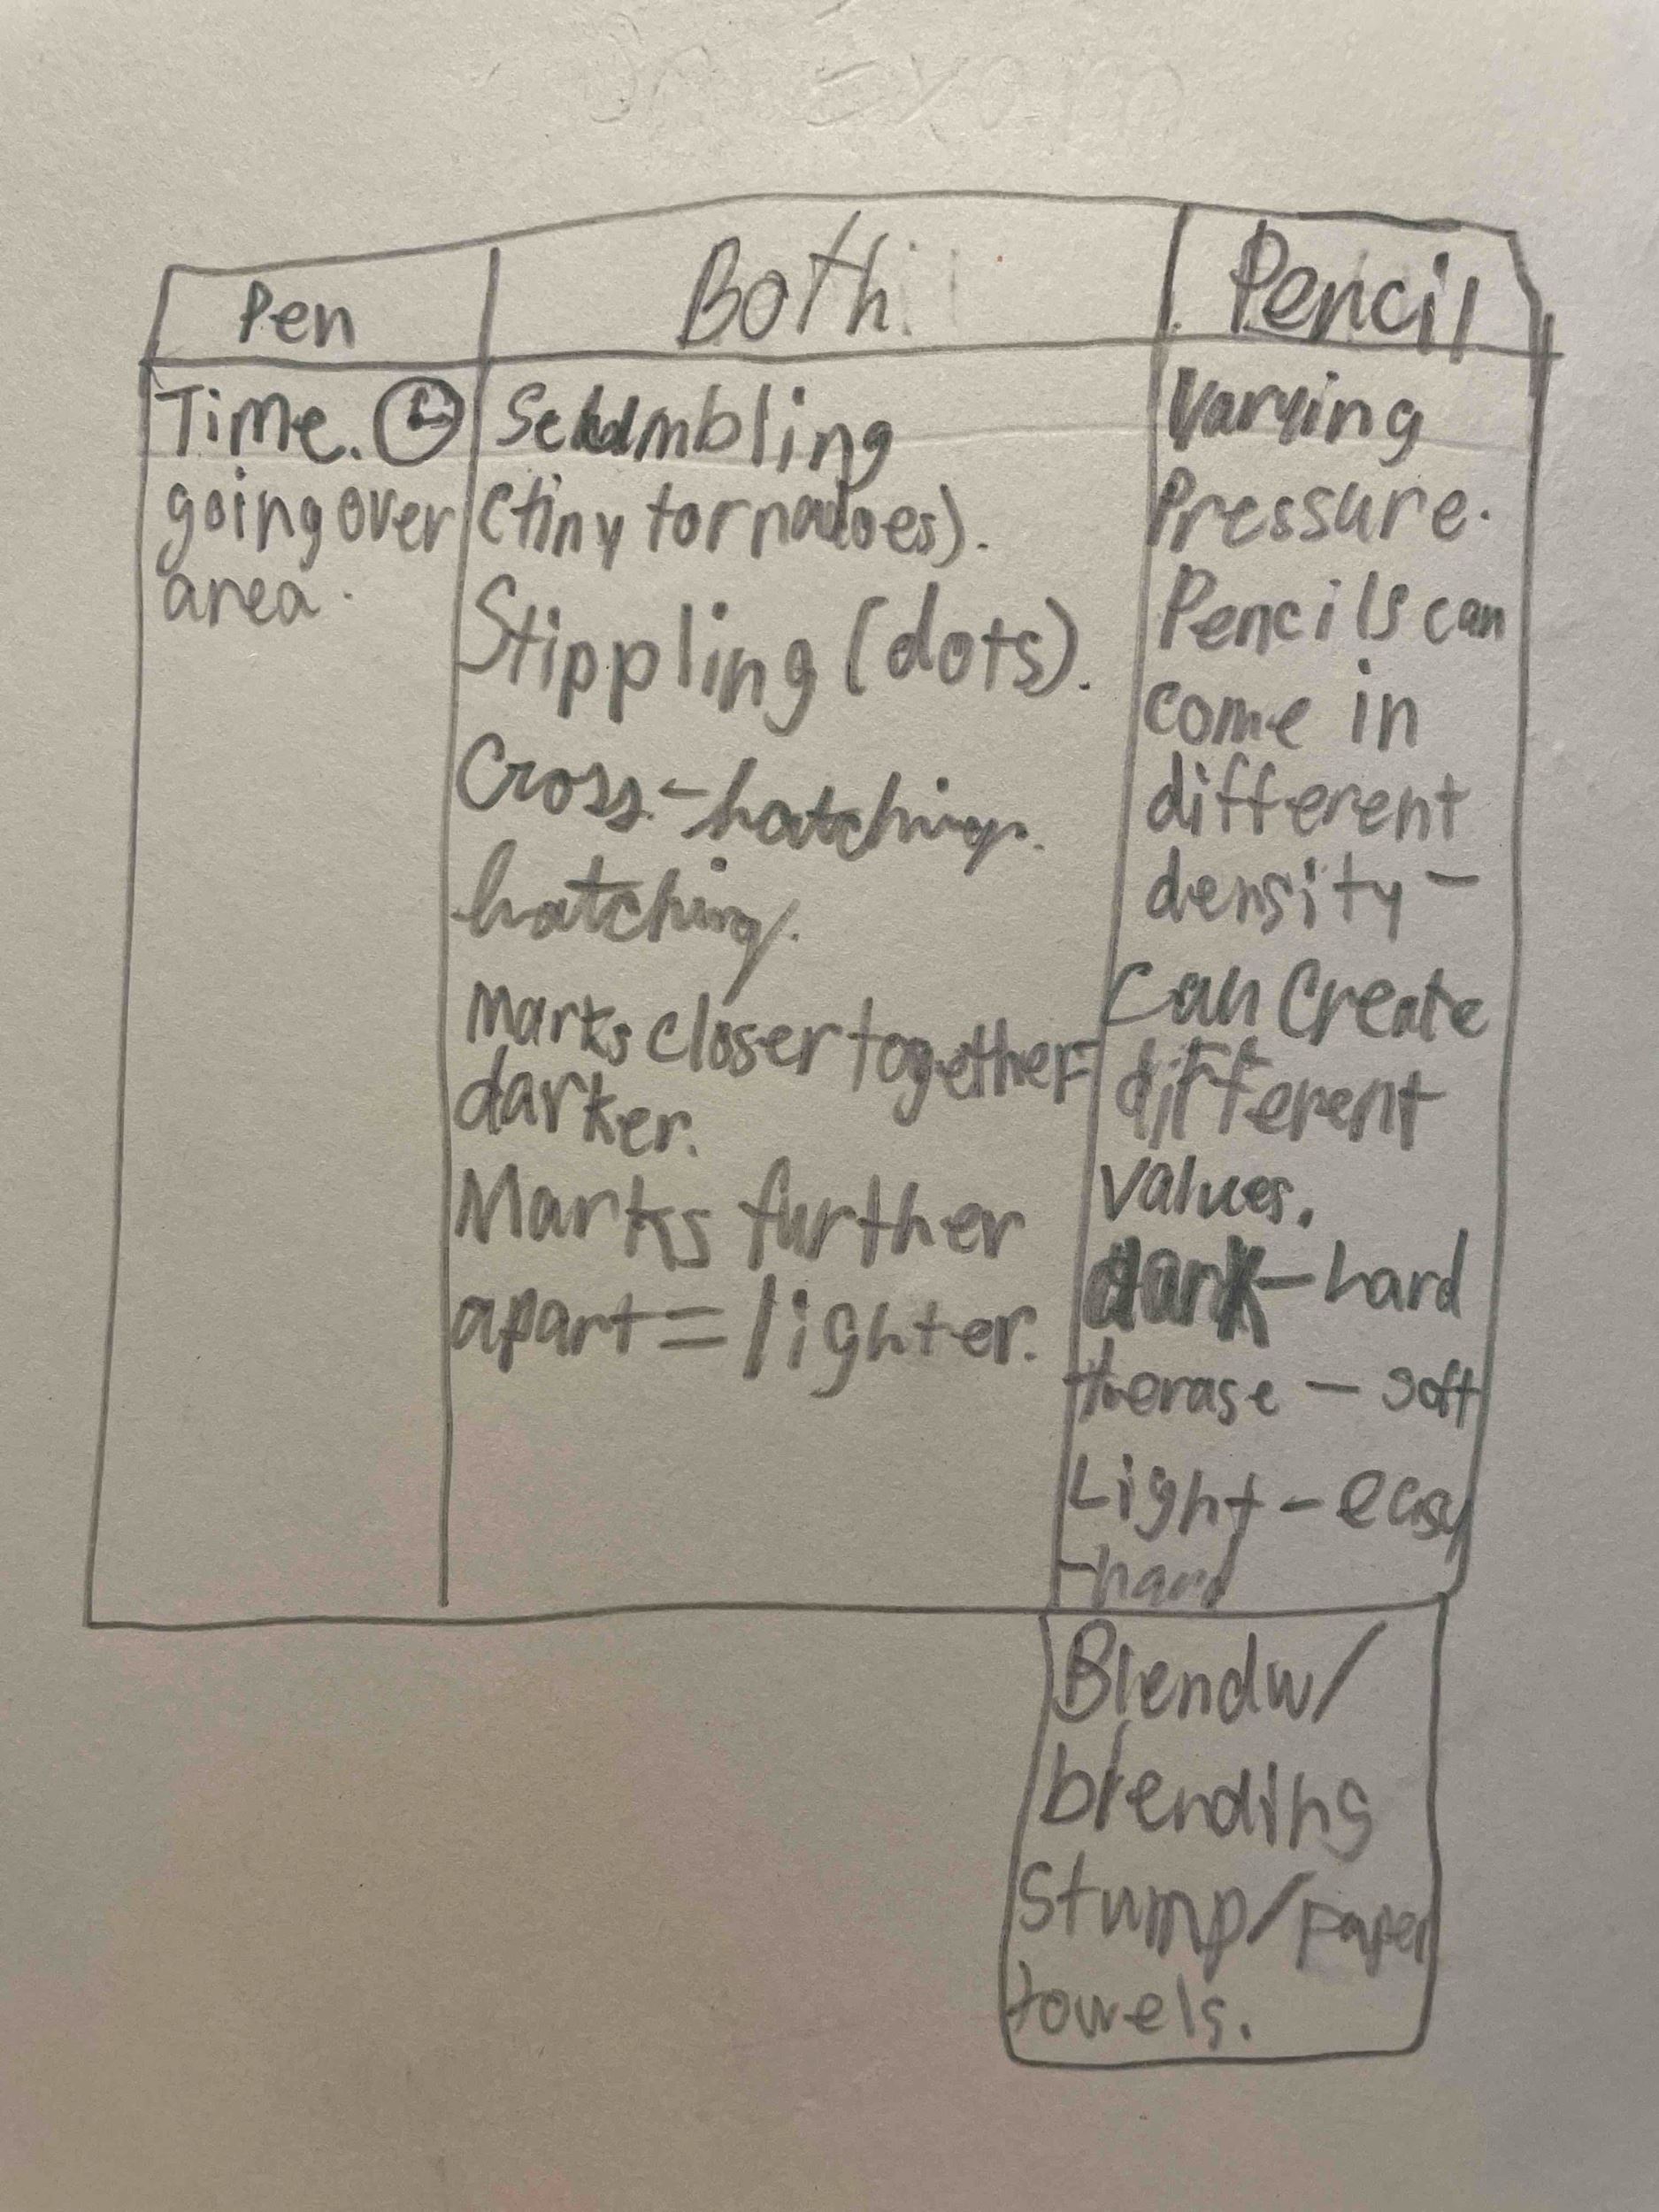 Pen
Both
Pencil
Time.
going over
area.
Scumbling
(tiny tornadoes).
Stippling (dots).
Cross-hatching.
hatching.
Marks closer together=
darker.
Marks further
apart = lighter.
Varying
Pressure.
Pencils can
come in
different
density -
Can Create
different
values.
dark - hard
erase - soft
Light - easy
- hard
Blend w/
blending
Stump/paper
towels.